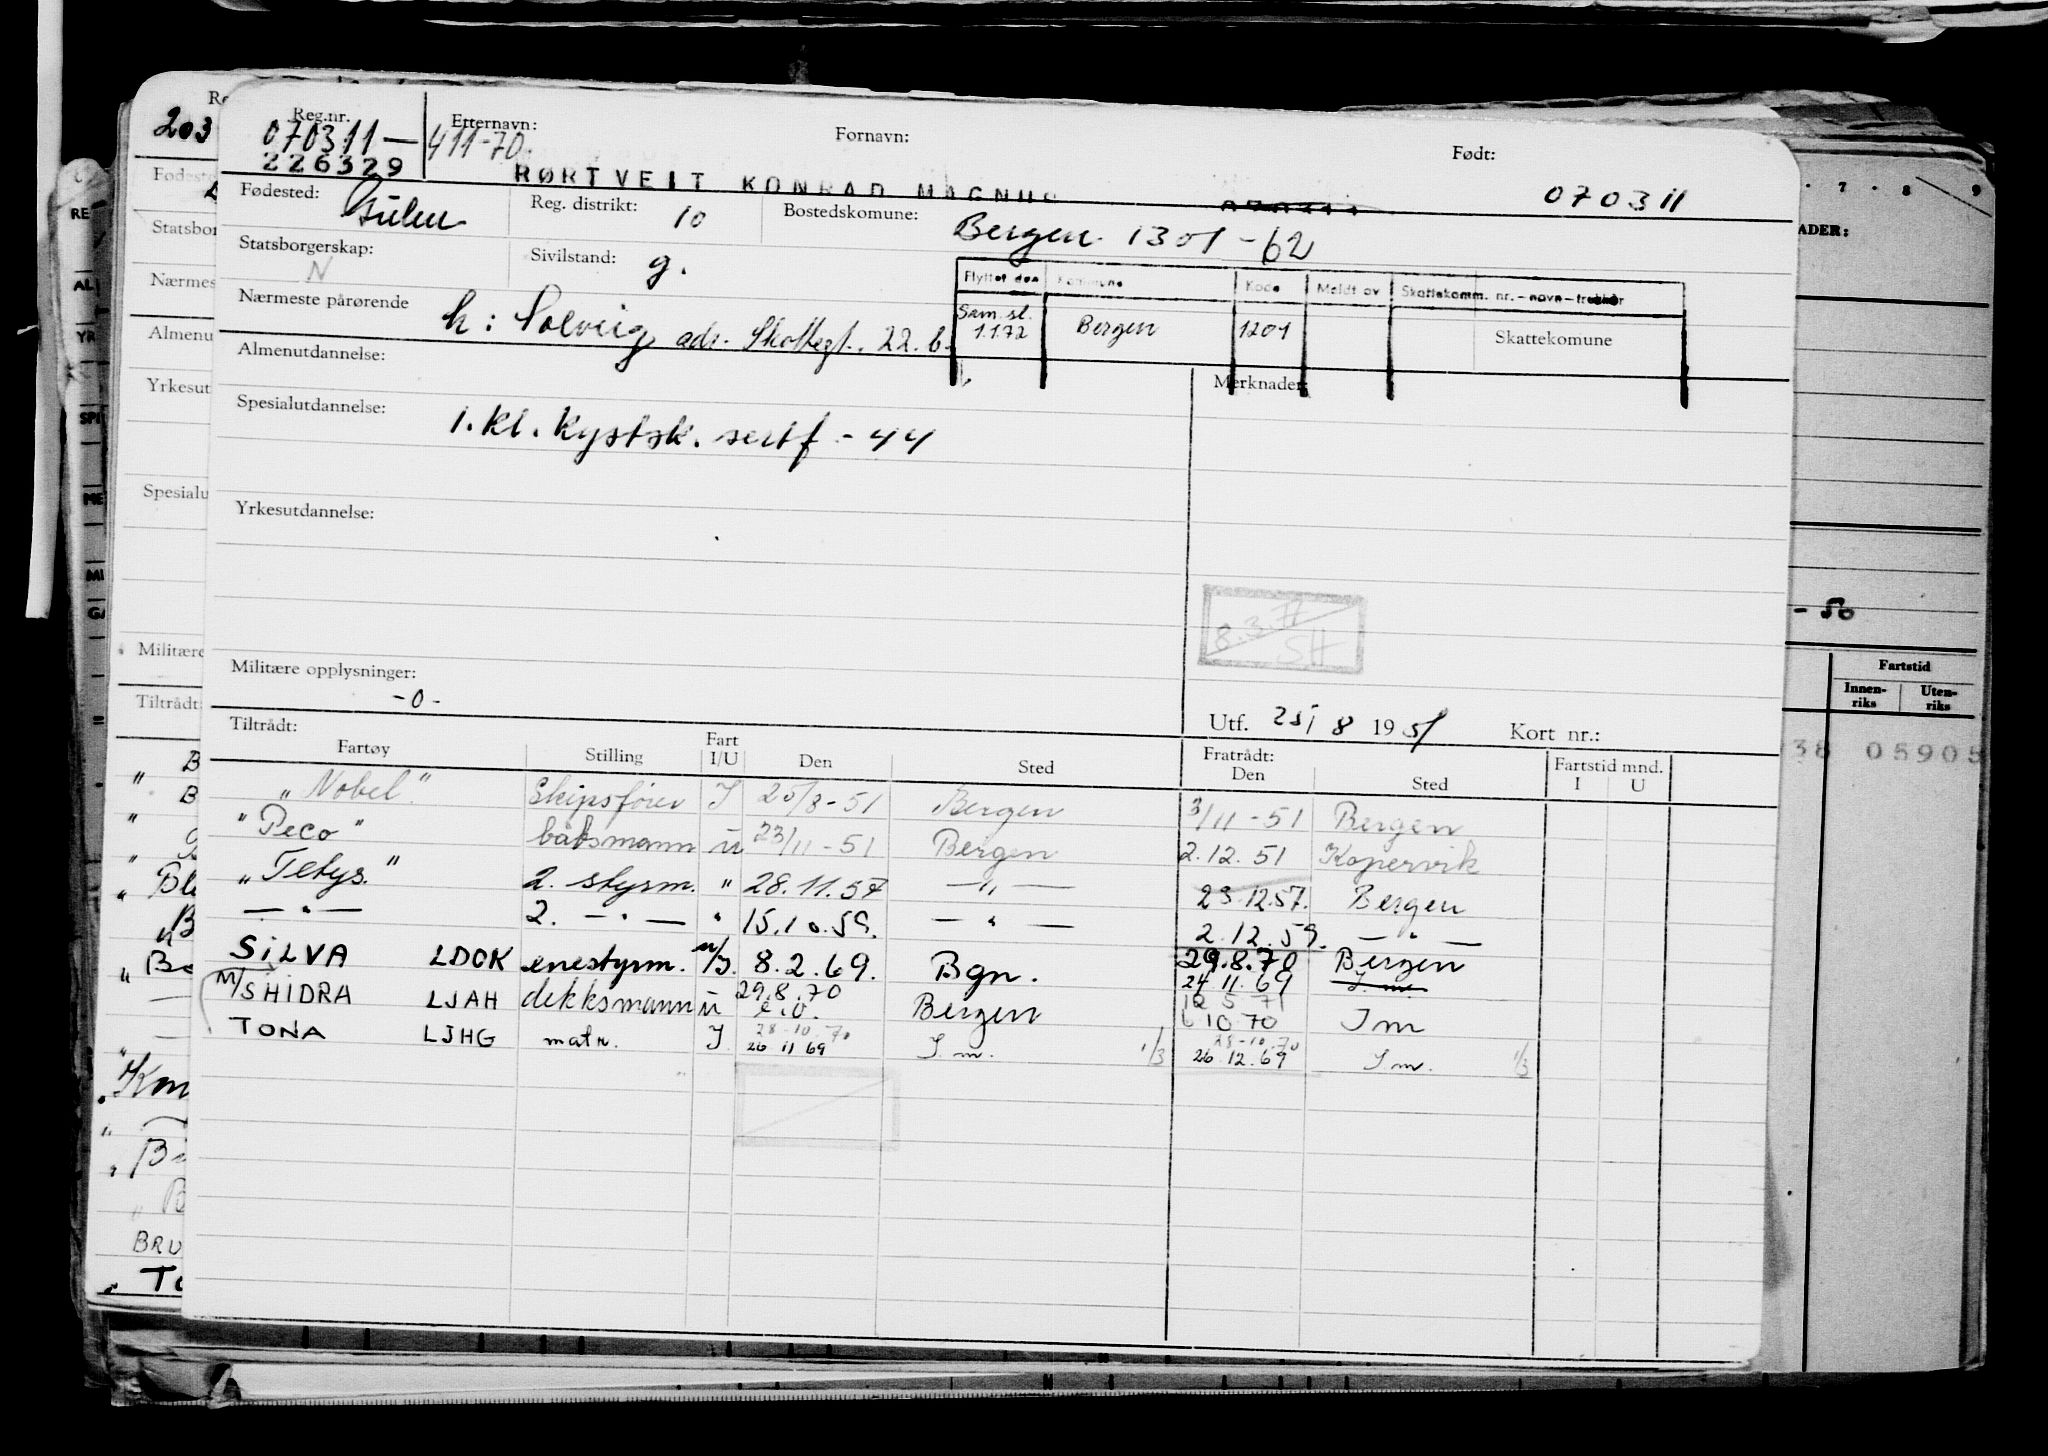 Reg.nr. Etternavn: Fornavn: Født:
070311— 411-70.
226329 RØRTVEIT KONRAD MAGNUS 070311
Fødested: Gulen Reg. distrikt: 10 Bostedskomune: Bergen 1301 -62
Statsborgerskap: N Sivilstand: g.
Flyttet den Kommune Kode Meldt av Skattekomm. nr. - navn - trekkår
Nærmeste pårørende h: Solveig adr. Skottegt. 22.b.
Sam.sl. 1.1.72 Bergen 1201 Skattekomune
Almenutdannelse: Merknader:
Spesialutdannelse: 1. kl. Kystsk. sertf - 44
Yrkesutdannelse:
8.3.71
SH
Militære opplysninger: -0-
Utf. 25/8 1951 Kort nr.:
Tiltrådt: Fratrådt: Fartstid mnd.
Fartøy Stilling Fart I/U Den Sted Den Sted I U
"Nobel" Skipsfører I 25/8-51 Bergen 3/11-51 Bergen
"Peco" båtsmann U 23/11-51 Bergen 2.12.51 Kopervik
"Tetys" 2. styrm. " 28.11.57 —"— 23.12.57. Bergen
—"— 2. —"— " 15.10.59. —"— 2.12.59. —"—
SILVA LDCK enestyrm. U/I. 8.2.69. Bgn. 29.8.70 Bergen
24.11.69 I.m.
M/SHIDRA LJAH dekksmann U 29.8.70 e.o. Bergen 12 5 71
6 10 70 I m
TONA LJHG matr. I 28-10-70 28-10-70
26 11 69 I.m. 1/3 26.12.69 I m. 1/3
203
- 50
Fartstid
Innen-riks Uten-riks
38 05905